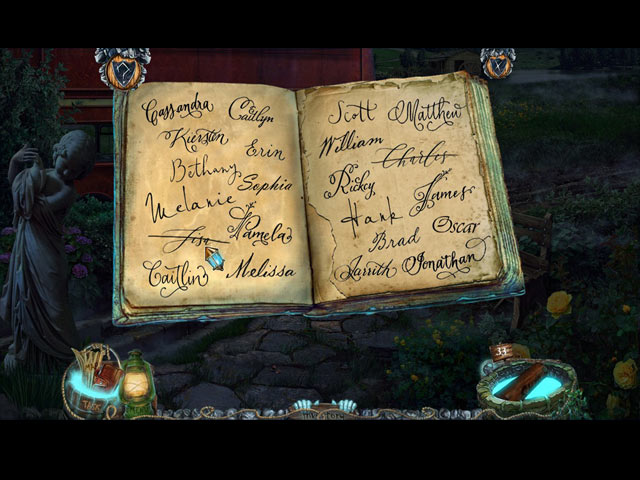 Cassandra Caitlyn
Kiersten Erin
Bethany
Sophia
Melanie
Lisa Pamela
Caitlin Melissa
Scott Matthew
William Charles
Ricky James
Hank Oscar
Brad
Jarrith Jonathan